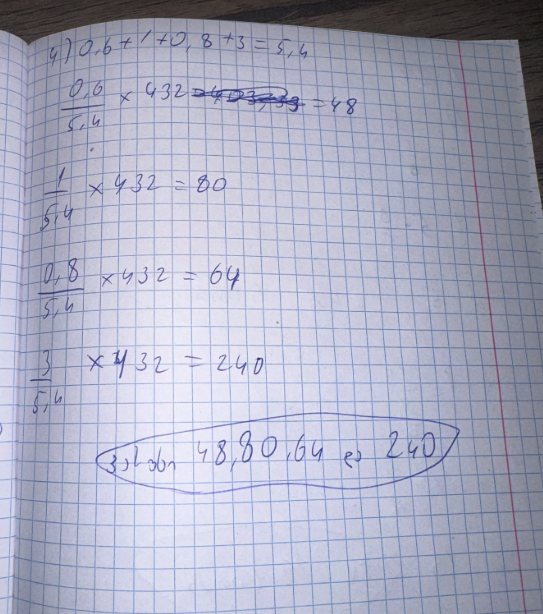 4) 0,6 + 1 + 0,8 + 3 = 5,4
0,6
5,4 × 432 = 48
1
5,4 × 432 = 80
0,8
5,4 × 432 = 64
3
5,4 × 432 = 240
48, 80, 64 და 240